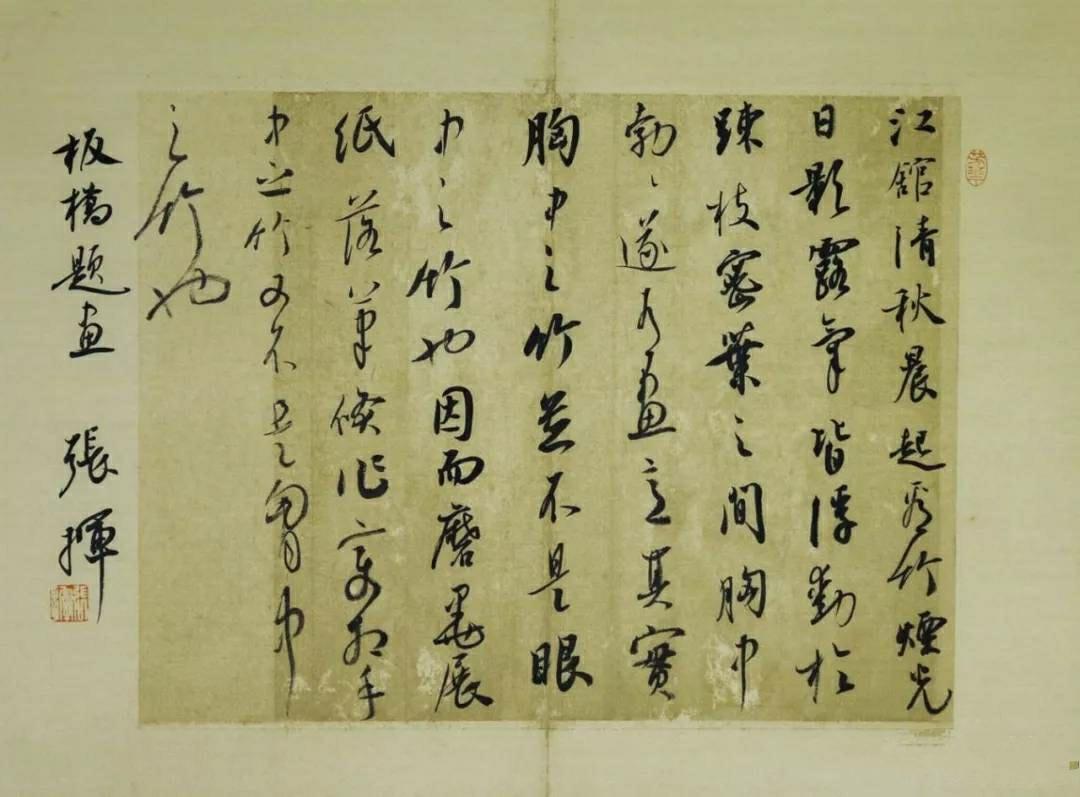 江館清秋晨起看竹煙光
日影露氣皆浮動於
疎枝密葉之間胸中
勃〻遂有畫意其實
胸中之竹並不是眼
中之竹也因而磨墨展
紙落筆倏作變相手
中之竹又不是胷中
之竹也
板橋題畫 張揮